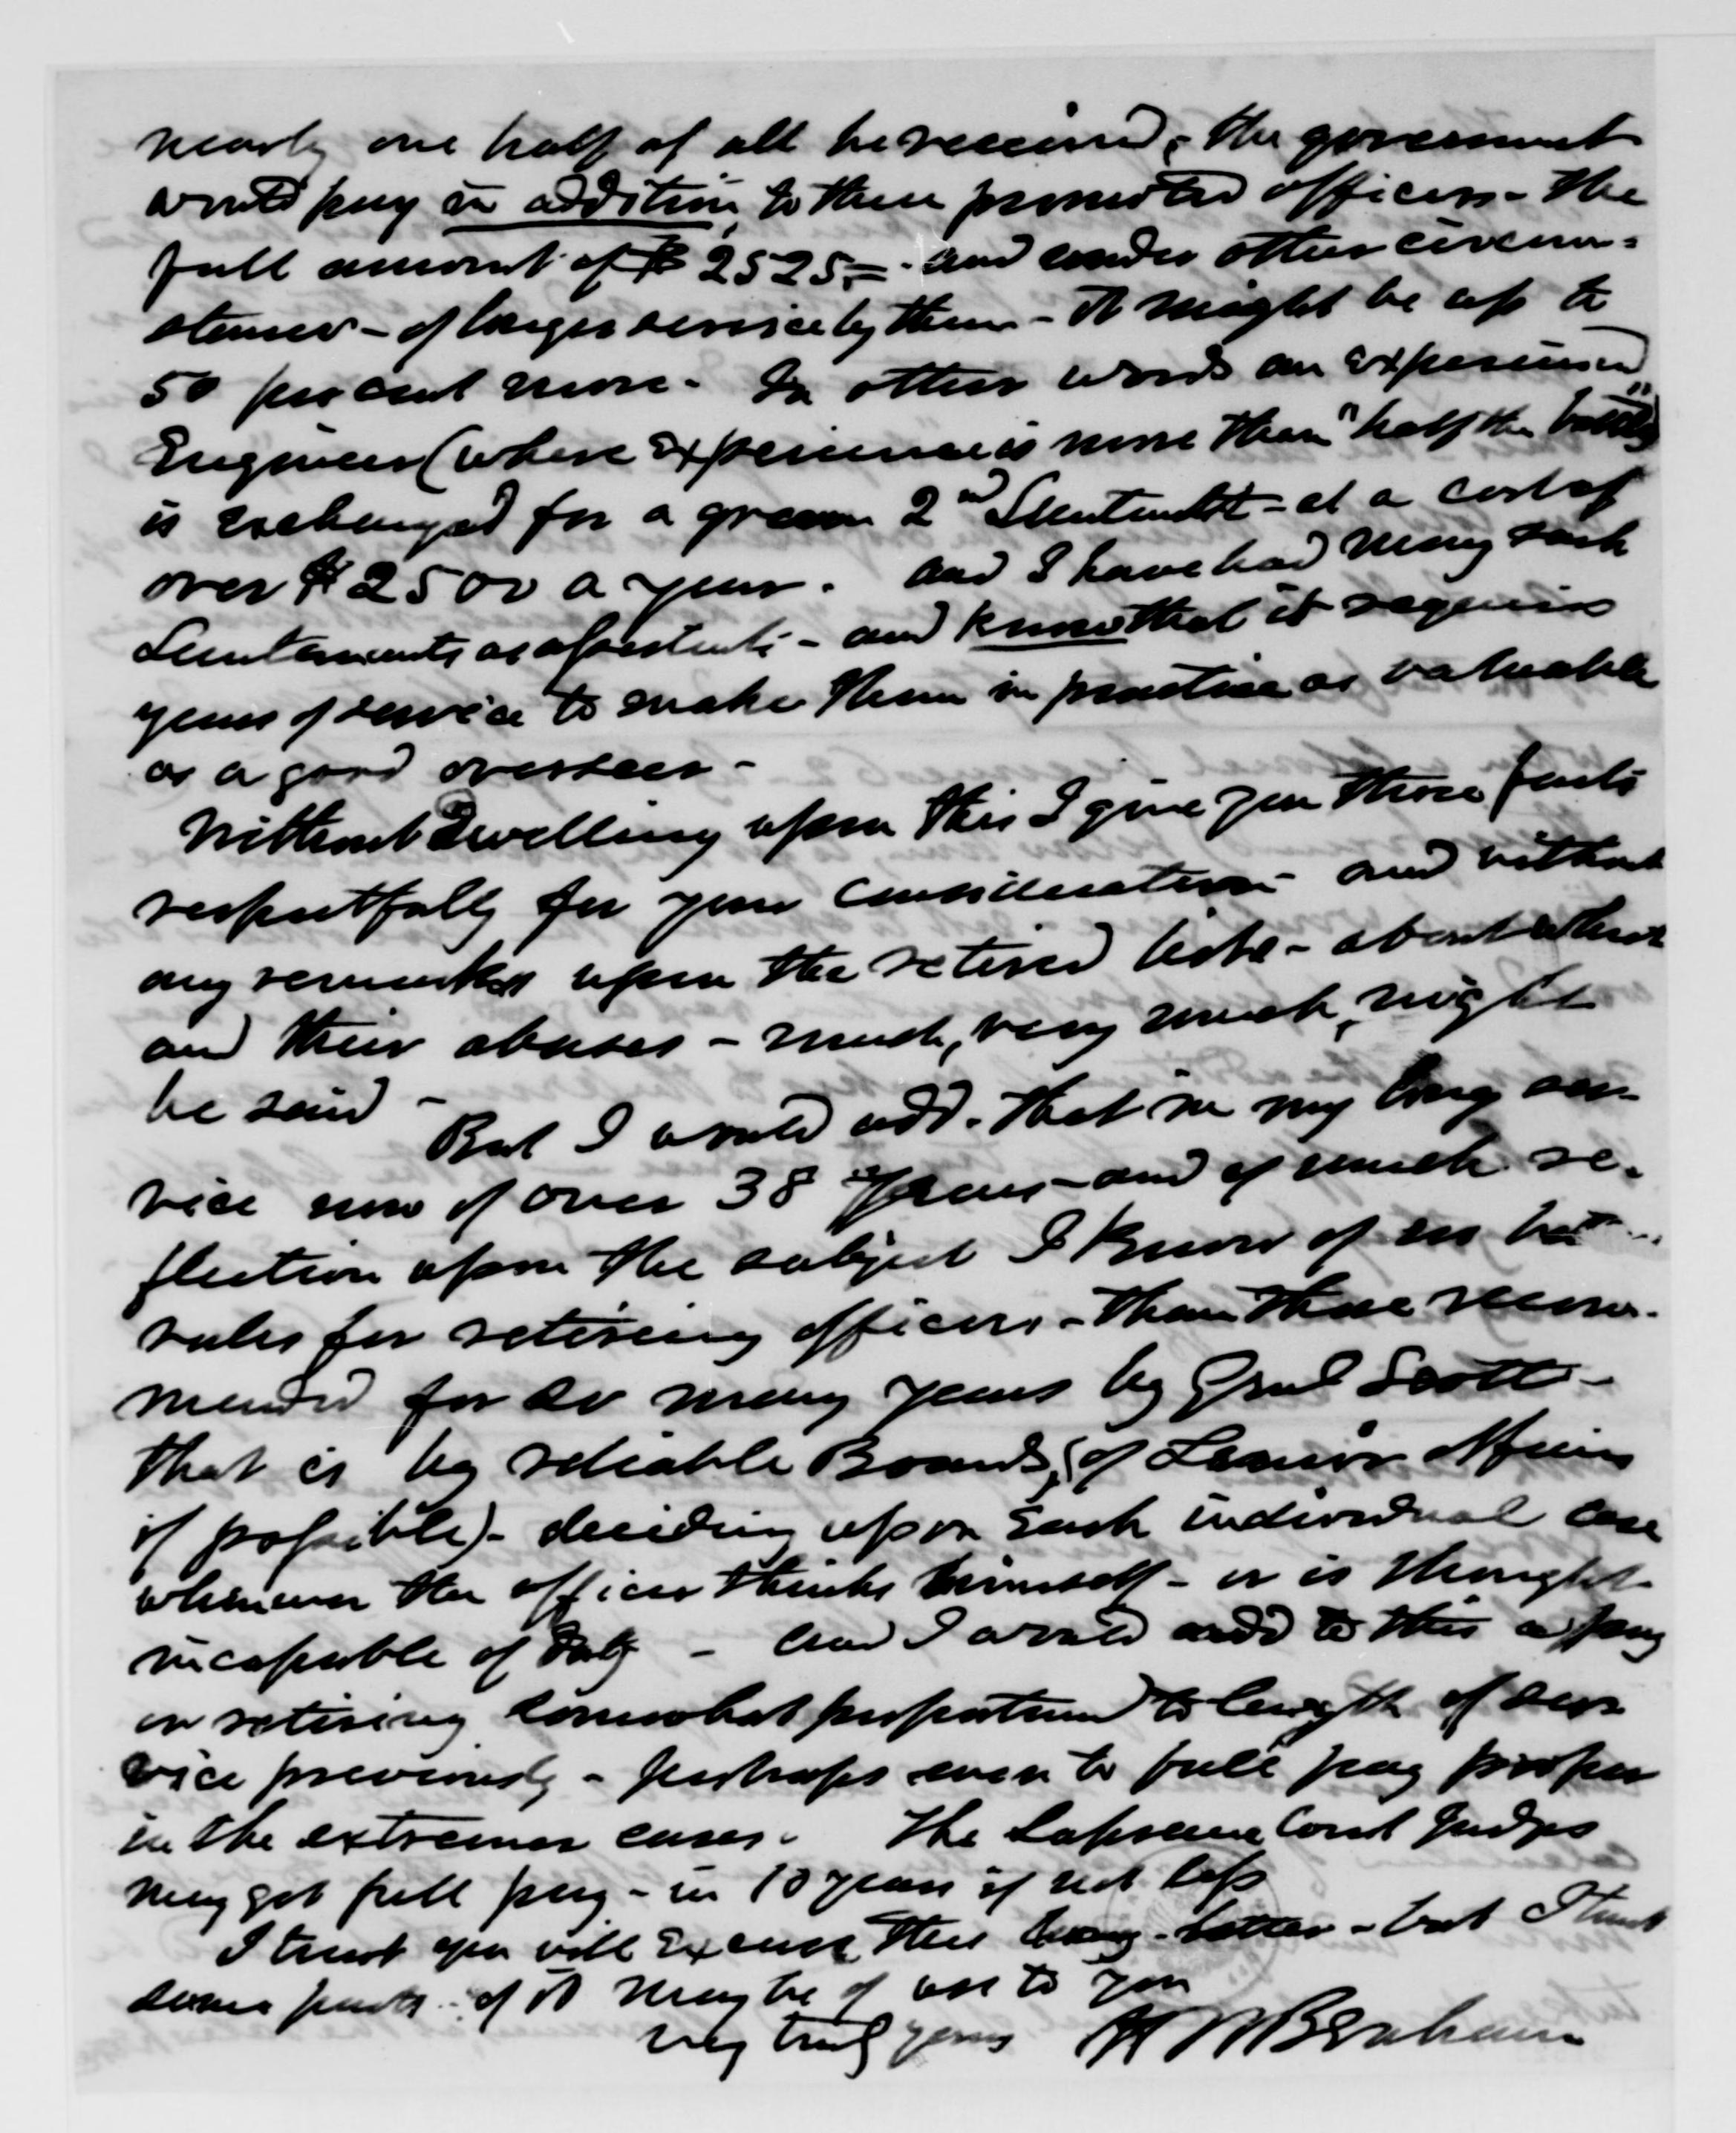 nearly one half of all he received, the government
would pay in addition, to these promoted officers - the
full amount of $2525.= and under other circum=
stances - of longer service by them - it might be up to
50 per cent more. In other words an experienced
Engineer (where experience is more than "half the battle")
is exchanged for a green 2nd Lieutenant - at a cost of
over $2500 a year. And I have had many such
Lieutenants as assistants - and know that it requires
years of service to make them in practice as valuable
as a good overseer -
Without Dwelling upon this I give you these facts
respectfully for your consideration - and without
any remarks upon the retired lists - about which
and their abuses - much, very much, might
be said - But I would add. that in my long ser-
vice now of over 38 years - and of much re-
flection upon the subject I know of no
rules for retiring officers - than those recom-
mended for so many years by Genl Scott -
that is by reliable Boards, (of Senior officers
if possible) - deciding upon each individual case
whenever the officer thinks himself - or is thought
incapable of duty - And I would add to this a pay
on retiring somewhat proportioned to length of ser
vice previously - perhaps even to full pay proper
in the extremer cases. The Supreme Court Judges
may get full pay - in 10 years if not less
I trust you will excuse this long letter - but I trust
some parts of it may be of use to you
very truly yours H W Benham